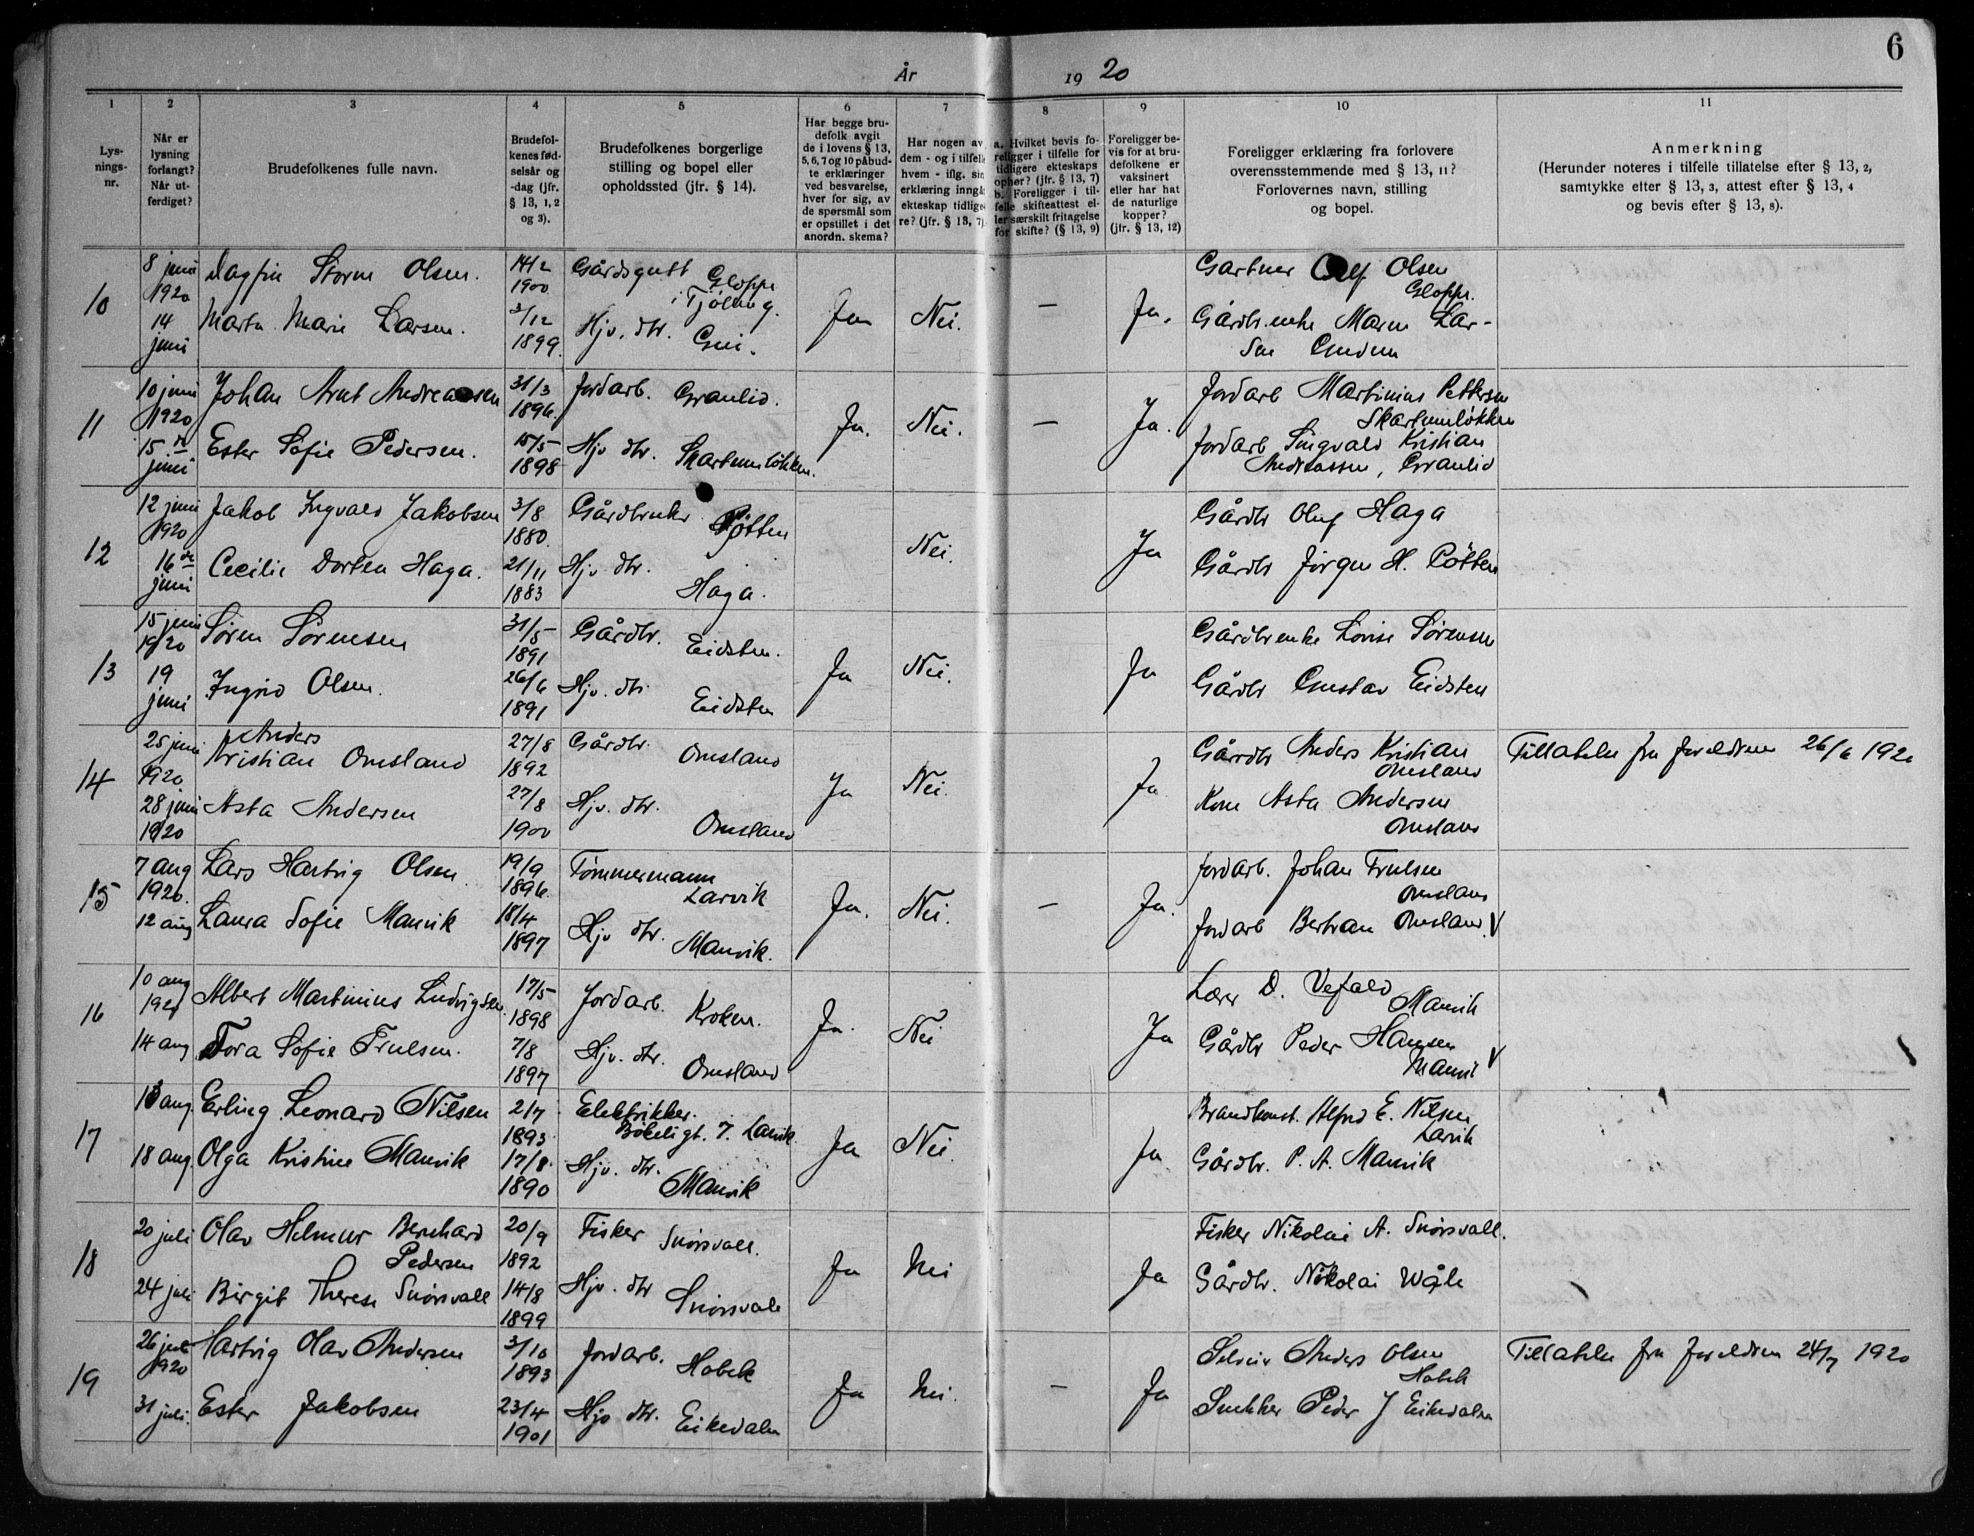 6
År 1920
1 2 3 4 5 6 7 8 9 10 11
Lys-
nings-
nr.
Når er
lysning
forlangt?
Når ut-
ferdiget?
Brudefolkenes fulle navn.
Brudefol-
kenes fød-
selsår og
-dag (jfr.
§ 13, 1, 2
og 3).
Brudefolkenes borgerlige
stilling og bopel eller
opholdssted (jfr. § 14).
Har begge bru-
defolk avgit
de i lovens § 13,
5, 6, 7 og 10 påbud-
te erklæringer
ved besvarelse,
hver for sig, av
de spørsmål som
er opstillet i det
anordn. skema?
Har nogen av
dem - og i tilfelle
hvem - iflg. sin
erklæring inngå
ekteskap tidlige
re? (jfr. § 13, 7)
a. Hvilket bevis fo-
religger i tilfelle for
tidligere ekteskaps
ophør? (jfr. § 13, 7)
b. Foreligger i til-
felle skifteattest el-
ler særskilt fritagelse
for skifte? (§ 13, 9)
Foreligger be-
vis for at bru-
defolkene er
vaksinert
eller har hat
de naturlige
kopper?
(jfr. § 13, 12)
Foreligger erklæring fra forlovere
overensstemmende med § 13, 11?
Forlovernes navn, stilling
og bopel.
Anmerkning
(Herunder noteres i tilfelle tillatelse efter § 13, 2,
samtykke efter § 13, 3, attest efter § 13, 4
og bevis efter § 13, 8).
10
8 juni
1920
14
juni
Dagfin Storm Olsen.
Marta Marie Larsen.
14/2
1900
3/12
1899.
Gårdsgutt Gloppe
i Tjølling.
Hjv. dtr.
Ja
Nei.
—
Ja.
Gartner Olsen
Gloppe.
Gårdbr.enke Maren Lar-
sen
11
10 juni
1920
15 de
juni
Johan Arnt Andreassen
Ester Sofie Pedersen.
31/3
1896.
15/5
1898
Jordarb. Granlid.
Hjv dtr. Skartumløkken.
Ja.
Nei.
—
Ja.
Jordarb Martinius Pettersen
Skartumløkken
Jordarb Singvald Kristian
Andreassen, Granlid
12
12 juni
1920
16 de
juni
Jakob Ingvald Jakobsen
Cecilie Dortea Haga.
3/8
1880.
21/11
1883
Gårdbruker Pøtten
Hjv dtr.
Haga.
Nei.
Ja
Gårdbr Oluf Haga
Gårdbr Jørgen H. Pøtten
13
15 juni
1920
19
juni
Søren Sørensen
Ingrid Olsen.
31/5
1891
26/6
1891
Gårdbr. Eidsten.
Hjv. dtr
Eidsten
Ja
Nei.
Ja
Gårdbrenke Lovise Sørensen
Gårdbr Gustav Eidsten
14
25 juni
1920
28 juni
1920
Anders
Kristian Omsland
Asta Andersen
27/8
1892
27/8
1900
Gårdbr. Omsland
Hjv. dtr.
Omsland
Ja
Nei.
Ja
Gårdbr Anders Kristian
Omsland
Kone Asta Andersen
Omsland
Tillatelse fra foreldrene 26/6 1920
15
7 aug
1920.
12 aug
Lars Hartvig Olsen
Laura Sofie Manvik
19/9
1896.
18/4
1897
Tømmermann
Larvik
Hjv dtr.
Manvik.
Ja.
Nei.
—
Ja.
Jordarb. Johan Trulsen
Omsland
Jordarb Bertran Omsland. V
16
10 aug
1920
14 aug
Albert Martinius Ludvigsen
Tora Sofie Trulsen.
17/5
1898
7/8
1897
Jordarb. Kroken.
Hjv. dtr.
Omsland
Ja.
Nei
Ja
Lærer D. Vefald
Manvik
Gårdbr Peder Hansen
Manvik V
17
13 aug.
18 aug.
Erling Leonard Nilsen
Olga Kristine Manvik
2/7
1893
17/8.
1890
Elektrikker.
Bøkeligt. 7. Larvik.
Hjv. dtr.
Manvik
Ja
Nei.
Ja
Brandkonst. Alfred E. Nilsen
Larvik
Gårdbr. P. A. Manvik
18
20 juli
24 juli
Olav Helmer Bernhard
Pedersen
Birgit Therese Snørsvall
20/9
1892
14/8
1899
Fisker Snørsvall.
Hjv. dtr
Snørsvall
Ja
Nei
Ja
Fisker Nikolai A. Snørsvall.
Gårdbr. Nikolai Wåle
19
26 juli
1920
31 juli.
Hartvig Olav Andersen
Ester Jakobsen
3/10
1893
23/4
1901
Jordarb. Hobek
Hjv dtr. Eikedalen
Ja
Nei.
—
Ja
Anders Olsen
Hobek
Snekker Peder J Eikedalen
Tillatelse fra foreldrene 24/7 1920